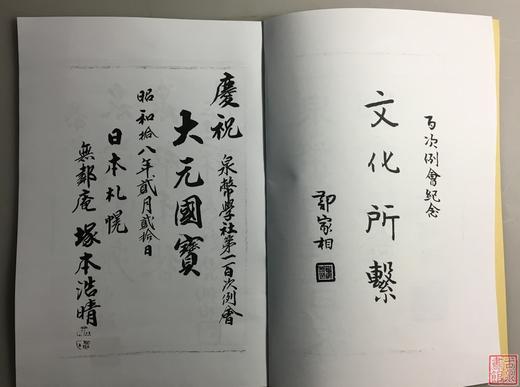 百次例會紀念
文化所繫
鄭家相
慶祝 泉幣學社第一百次例會
大元國寶
昭和拾八年貳月貳拾日
日本札幌
塚本浩晴